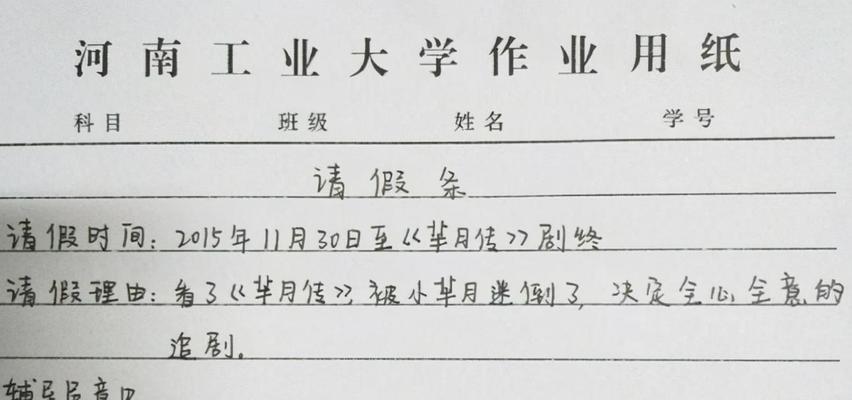 河南工业大学作业用纸
科目 班级 姓名 学号
请假条
请假时间：2015年11月30日至《芈月传》剧终
请假理由：看了《芈月传》,被小芈月迷倒了,决定全心全意的
追剧。
辅导员意见